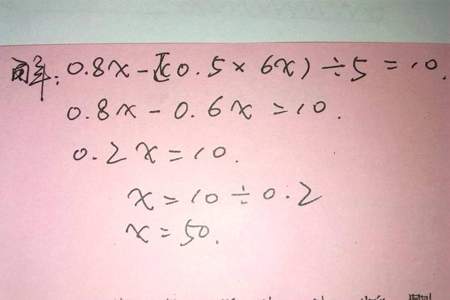 解: 0.8x-[(0.5×6x)÷5=10.
0.8x-0.6x=10.
0.2x=10.
x=10÷0.2
x=50.